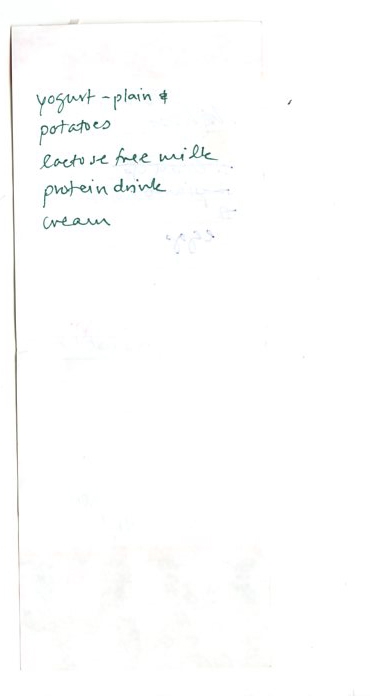 yogurt - plain &
potatoes
lactose free milk
protein drink
cream